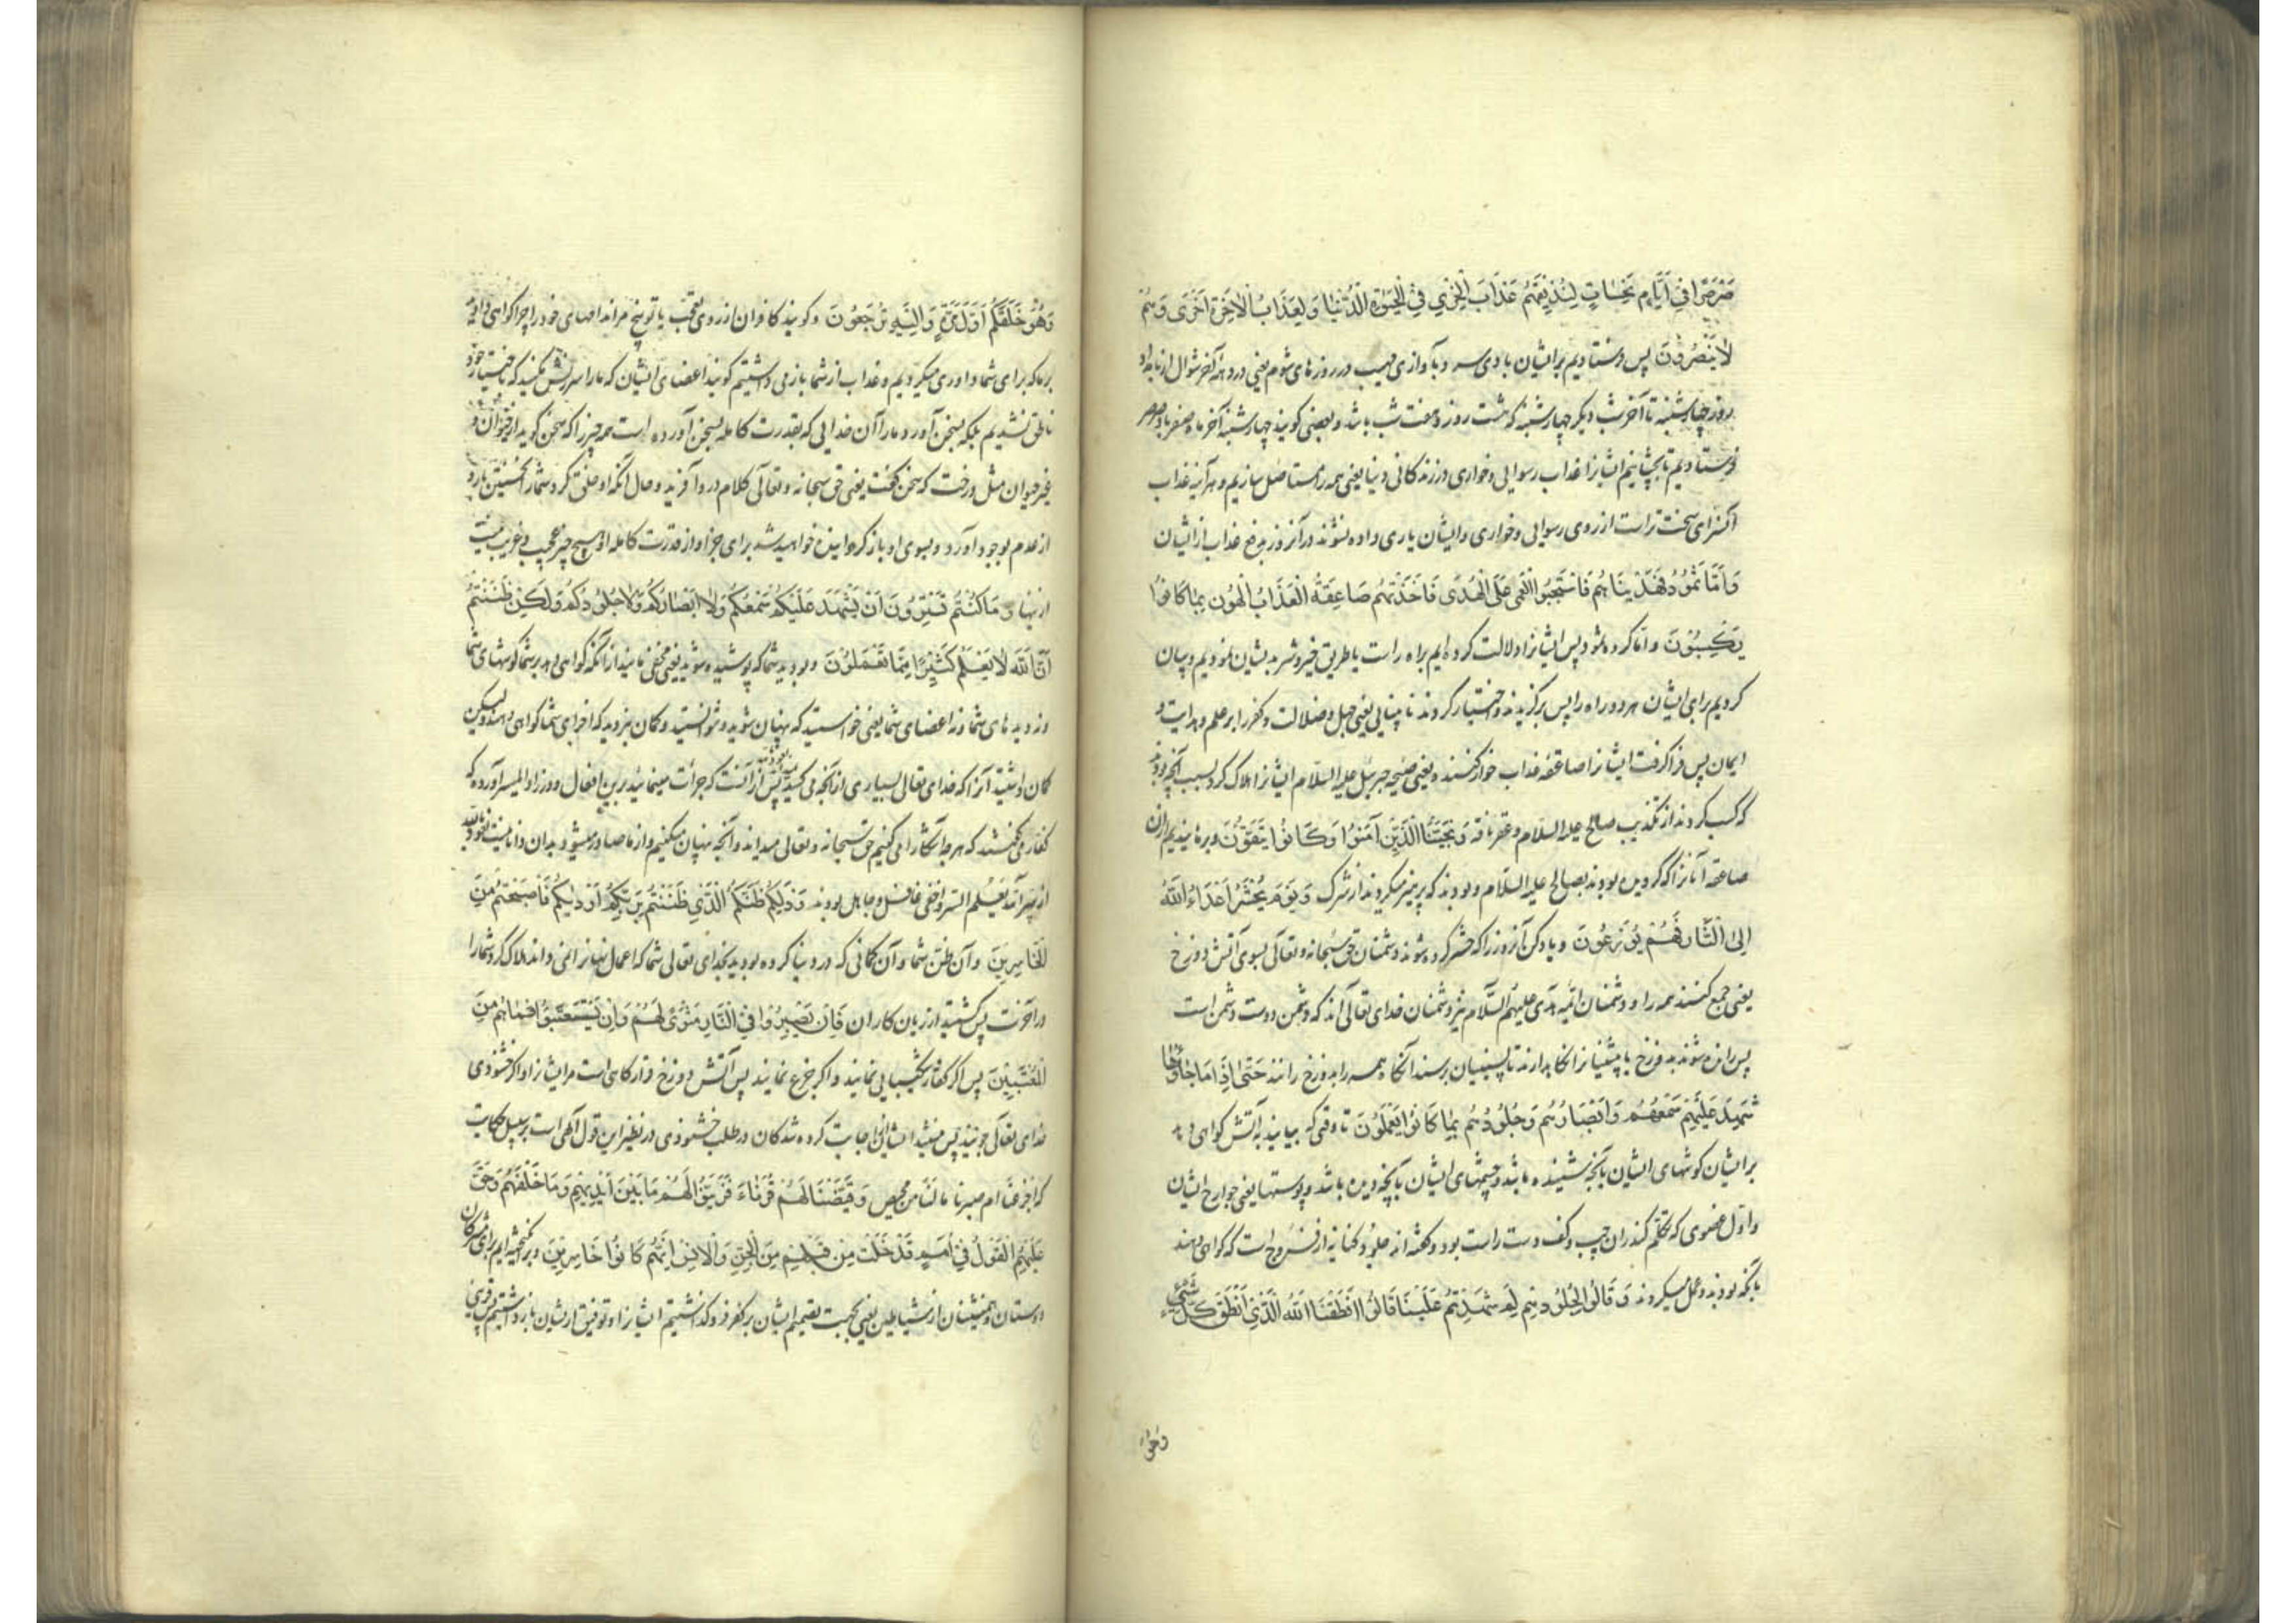 صَرْصَرًا فِي أَيَّامٍ نَحِسَاتٍ لِنُذِيقَهُمْ عَذَابَ الْخِزْيِ فِي الْحَيٰوةِ الدُّنْيَا وَلَعَذَابُ الْآخِرَةِ أَخْزَى وَهُمْ
لَا يُنْصَرُونَ پس فرستادیم بر ایشان بادی سرد با آوازی مهیب در روزهای شوم یعنی در دهه آخر شوال از بامداد
روز چهارشنبه تا آخر شب دیکر چهارشنبه که هشت روز و هفت شب باشد و بعضی کویند چهارشنبه آخر ماه صفر باد صرصر
فرستادیم تا بچشانیم ایشانرا عذاب رسوایی و خواری در زندکانی دنیا یعنی همه را مستاصل سازیم و هرآینه عذاب
آنسرای سخت تر است از روی رسوایی و خواری و ایشان یاری داده نشوند در آنروز بدفع عذاب از ایشان
وَأَمَّا ثَمُودُ فَهَدَيْنَاهُمْ فَاسْتَحَبُّوا الْعَمَى عَلَى الْهُدَى فَأَخَذَتْهُمْ صَاعِقَةُ الْعَذَابِ الْهُونِ بِمَا كَانُوا
يَكْسِبُونَ و اما کروه ثمود پس ایشانرا دلالت کرده ایم براه راست یا طریق خیر و شر بدیشان نمودیم و بیان
کردیم برای ایشان هر دو راه را پس برکزیدند و اختیار کردند نابینایی یعنی جهل و ضلالت و کفر را بر علم و هدایت و
ایمان پس فرا کرفت ایشانرا صاعقه عذاب خوار کننده یعنی صیحه جبرئیل علیه السلام ایشانرا هلاک کرد بسبب آنچه بودند
که کسب کردند از تکذیب صالح علیه السلام و عقر ناقه وَنَجَّيْنَا الَّذِينَ آمَنُوا وَكَانُوا يَتَّقُونَ و برهانیدیم ازان
صاعقه آنانرا که کرویده بودند بصالح علیه السلام و بودند که پرهیز میکردند از شرک وَيَوْمَ يُحْشَرُ أَعْدَاءُ اللَّهِ
إِلَى النَّارِ فَهُمْ يُوزَعُونَ و یاد کن آنروز را که حشر کرده شوند دشمنان حق سبحانه و تعالی بسوی آتش دوزخ
یعنی جمع کنند همه را و دشمنان ائمه هدی علیهم السلام نیز دشمنان خدای تعالی اند که دشمن دوست دشمن است
پس رانده شوند بدوزخ یا پیشینیانرا نکاهدارند تا پسینیان برسند آنکاه همه را بدوزخ رانند حَتَّى إِذَا مَا جَاؤُهَا
شَهِدَ عَلَيْهِمْ سَمْعُهُمْ وَأَبْصَارُهُمْ وَجُلُودُهُمْ بِمَا كَانُوا يَعْمَلُونَ تا وقتی که بیایند به آتش کواهی دهد
بر ایشان کوشهای ایشان بآنچه شنیده باشد و چشمهای ایشان بآنچه دیده باشد و پوستها یعنی جوارح ایشان
و اول عضوی که تکلم کند ران چپ و کف دست راست بود و کفته اند جلود کنایه از فروج است که کواهی دهند
بآنچه بودند و عمل میکردند وَقَالُوا لِجُلُودِهِمْ لِمَ شَهِدْتُمْ عَلَيْنَا قَالُوا أَنْطَقَنَا اللَّهُ الَّذِي أَنْطَقَ كُلَّ شَيْءٍ
وَهُوَ
وَهُوَ خَلَقَكُمْ أَوَّلَ مَرَّةٍ وَإِلَيْهِ تُرْجَعُونَ و کویند کافران از روی تعجب یا توبیخ مر اندامهای خود را چرا کواهی دادید
بر ما که برای شما داوری میکردیم و عذاب از شما باز می داشتیم کویند اعضای ایشان که ما را سرزنش مکنید که باختیار خود
ناطق نشدیم بلکه بسخن آورد ما را آن خدایی که بقدرت کامله بسخن آورده است همه چیز را که سخن کوید از حیوان و
غیر حیوان مثل درخت که سخن کفت یعنی حق سبحانه و تعالی کلام در و آفرید و حال آنکه او خلق کرد شما را نخستین بار و
از عدم بوجود آورد و بسوی او باز کردانیده خواهید شد برای جزا و از قدرت کامله او هیچ چیز عجیب و غریب نیست
از ینها وَمَا كُنْتُمْ تَسْتَتِرُونَ أَنْ يَشْهَدَ عَلَيْكُمْ سَمْعُكُمْ وَلَا أَبْصَارُكُمْ وَلَا جُلُودُكُمْ وَلَكِنْ ظَنَنْتُمْ
أَنَّ اللَّهَ لَا يَعْلَمُ كَثِيرًا مِمَّا تَعْمَلُونَ و نبودید شما که پوشیده شوید یعنی مخفی نمانید از آنکه کواهی دهد بر شما کوشهای شما
و نه دیدهای شما و نه اعضای شما یعنی خواستید که پنهان شوید و نتوانستید و کمان نبردید که اجزای شما کواهی دهند و لیکن
کمان داشتید آنرا که خدای تعالی بسیاری از آنچه می کنید نمیداند پس ازآنست که جرأت مینمائید برین افعال و در زاد المیسر آورده که
کفار می کفتند که هر چه آشکارا می کنیم حق سبحانه و تعالی میداند و آنچه پنهان میکنیم و از ما صادر میشود بدان دانا نیست نعوذ بالله
از سر آنه یعلم السر و اخفی غافل و جاهل بودند وَذَلِكُمْ ظَنُّكُمُ الَّذِي ظَنَنْتُمْ بِرَبِّكُمْ أَرْدَاكُمْ فَأَصْبَحْتُمْ مِنَ
الْخَاسِرِينَ و آن ظن شما و آن کمانی که در دنیا کرده بودید بخدای تعالی شما که اعمال نهانرا نمی داند هلاک کرد شما را
در آخرت پس کشتید از زیان کاران فَإِنْ يَصْبِرُوا فِي النَّارِ مَثْوًى لَهُمْ وَإِنْ يَسْتَعْتِبُوا فَمَا هُمْ مِنَ
الْمُعْتَبِينَ پس اکر کفار شکیبایی نمایند و اکر جزع نمایند پس آتش دوزخ قرارکاهی است مر ایشانرا و اکر خشنودی
خدای تعالی جویند پس نیستند ایشان اجابت کرده شدکان در طلب خشنودی در نظیر این قول الهی است بر سبیل حکایت
که اجزعنا ام صبرنا ما لنا من محیص وَقَيَّضْنَا لَهُمْ قُرَنَاءَ فَزَيَّنُوا لَهُمْ مَا بَيْنَ أَيْدِيهِمْ وَمَا خَلْفَهُمْ وَحَقَّ
عَلَيْهِمُ الْقَوْلُ فِي أُمَمٍ قَدْ خَلَتْ مِنْ قَبْلِهِمْ مِنَ الْجِنِّ وَالْإِنْسِ إِنَّهُمْ كَانُوا خَاسِرِينَ و برانکیخته ایم برای مشرکان
دوستان و همنشینان از شیاطین یعنی بجهت تصمیم ایشان بر کفر فرو کذاشتیم ایشانرا و توفیق از ایشان باز داشتیم پس قرین